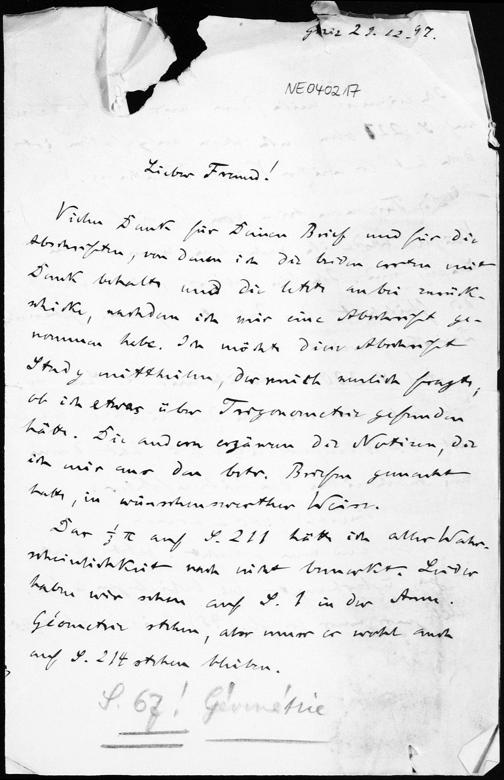 Greiz 29.12.97.
NE040217
Lieber Freund!
Vielen Dank für Deinen Brief und für die
Abschriften, von denen ich die beiden ersten mit
Dank behalte und die letzte anbei zurück-
schicke, nachdem ich mir eine Abschrift ge-
nommen habe. Ich möchte diese Abschrift
Study mittheilen, der mich neulich fragte,
ob ich etwas über Trigonometrie gefunden
hätte. Die andern ergänzen die Notizen, die
ich mir aus den betr. Briefen gemacht
hatte, in wünschenswerther Weise.
Das ½ π auf S. 211 hätte ich aller Wahr-
scheinlichkeit nach nicht bemerkt. Leider
haben wir schon auf S. 1 in der Anm.
Géometrie stehen, also muss es wohl auch
auf S. 214 stehen bleiben.
S. 67! Géométrie